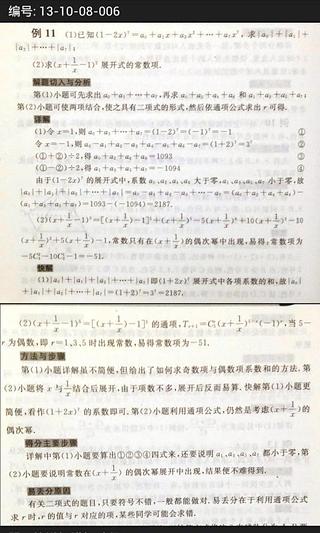 编号: 13-10-08-006
例 11 (1)已知(1-2x)⁷=a₀+a₁x+a₂x²+…+a₇x⁷, 求|a₀|+|a₁|+
|a₂|+…+|a₇|;
(2)求(x+1/x-1)⁵展开式的常数项.
解题切入与分析
第(1)小题可先求出a₀+a₁+…+a₇,再求
第(2)小题可使两项结合,使之具有二项式的形式,然后依通项公式求出r可得.
详解
(1)令x=1,则a₀+a₁+…+a₇=(1-2)⁷=(-1)⁷=-1 ①
令x=-1,则a₀-a₁+a₂-a₃+a₄-a₅+a₆-a₇=(1+2)⁷=3⁷ ②
(①+②)÷2,得a₀+a₂+a₄+a₆=1093 ③
(①-②)÷2,得a₁+a₃+a₅+a₇=-1094 ④
由于(1-2x)⁷的展开式中,系数a₀,a₂,a₄,a₆大于零,a₁,a₃,a₅,a₇小于零,故
|a₀|+|a₁|+|a₂|+…+|a₇|=a₀-a₁+a₂-a₃+…-a₇=(a₀+a₂+a₄+a₆)-
(a₁+a₃+a₅+a₇)=1093-(-1094)=2187.
(2)(x+1/x-1)⁵=[(x+1/x)-1]⁵=(x+1/x)⁵-5(x+1/x)⁴+10(x+1/x)³-10
(x+1/x)²+5(x+1/x)-1,常数只有在(x+1/x)的偶次幂中出现,易得,常数项为
-5C²₄-10C¹₂-1=-51.
快解
(1)|a₀|+|a₁|+|a₂|+…+|a₇|即(1+2x)⁷展开式中各项系数的和,故|a₀|
+|a₁|+|a₂|+…+|a₇|=(1+2)⁷=3⁷=2187.
(2)(x+1/x-1)⁵=[(x+1/x)-1]⁵的通项,Tᵣ₊₁=Cʳ₅(x+1/x)⁵⁻ʳ(-1)ʳ,当5-
r为偶数,即r=1,3,5时出现常数,易得常数项为-51.
方法与步骤
第(1)小题详解虽不简便,但给出了如何求奇数项与偶数项系数和的方法.第
(2)小题将x与1/x结合后展开,由于项数不多,展开后反而易算.快解第(1)小题更
简便,看作(1+2x)⁷的系数即可.第(2)小题利用通项公式,仍然是考虑(x+1/x)的
偶次幂.
得分主要步骤
详解中第(1)小题要算出①②③④四式来,还要说明a₁,a₃,a₅,a₇都小于零,第
(2)小题要说明常数在(x+1/x)的偶次幂展开中出现,结果便不难得到.
易丢分原因
有关二项式的题目,只要符号不错,一般都能做对.易丢分在于利用通项公式
求r时,r的值与r对应的项,某些同学可能会求错.